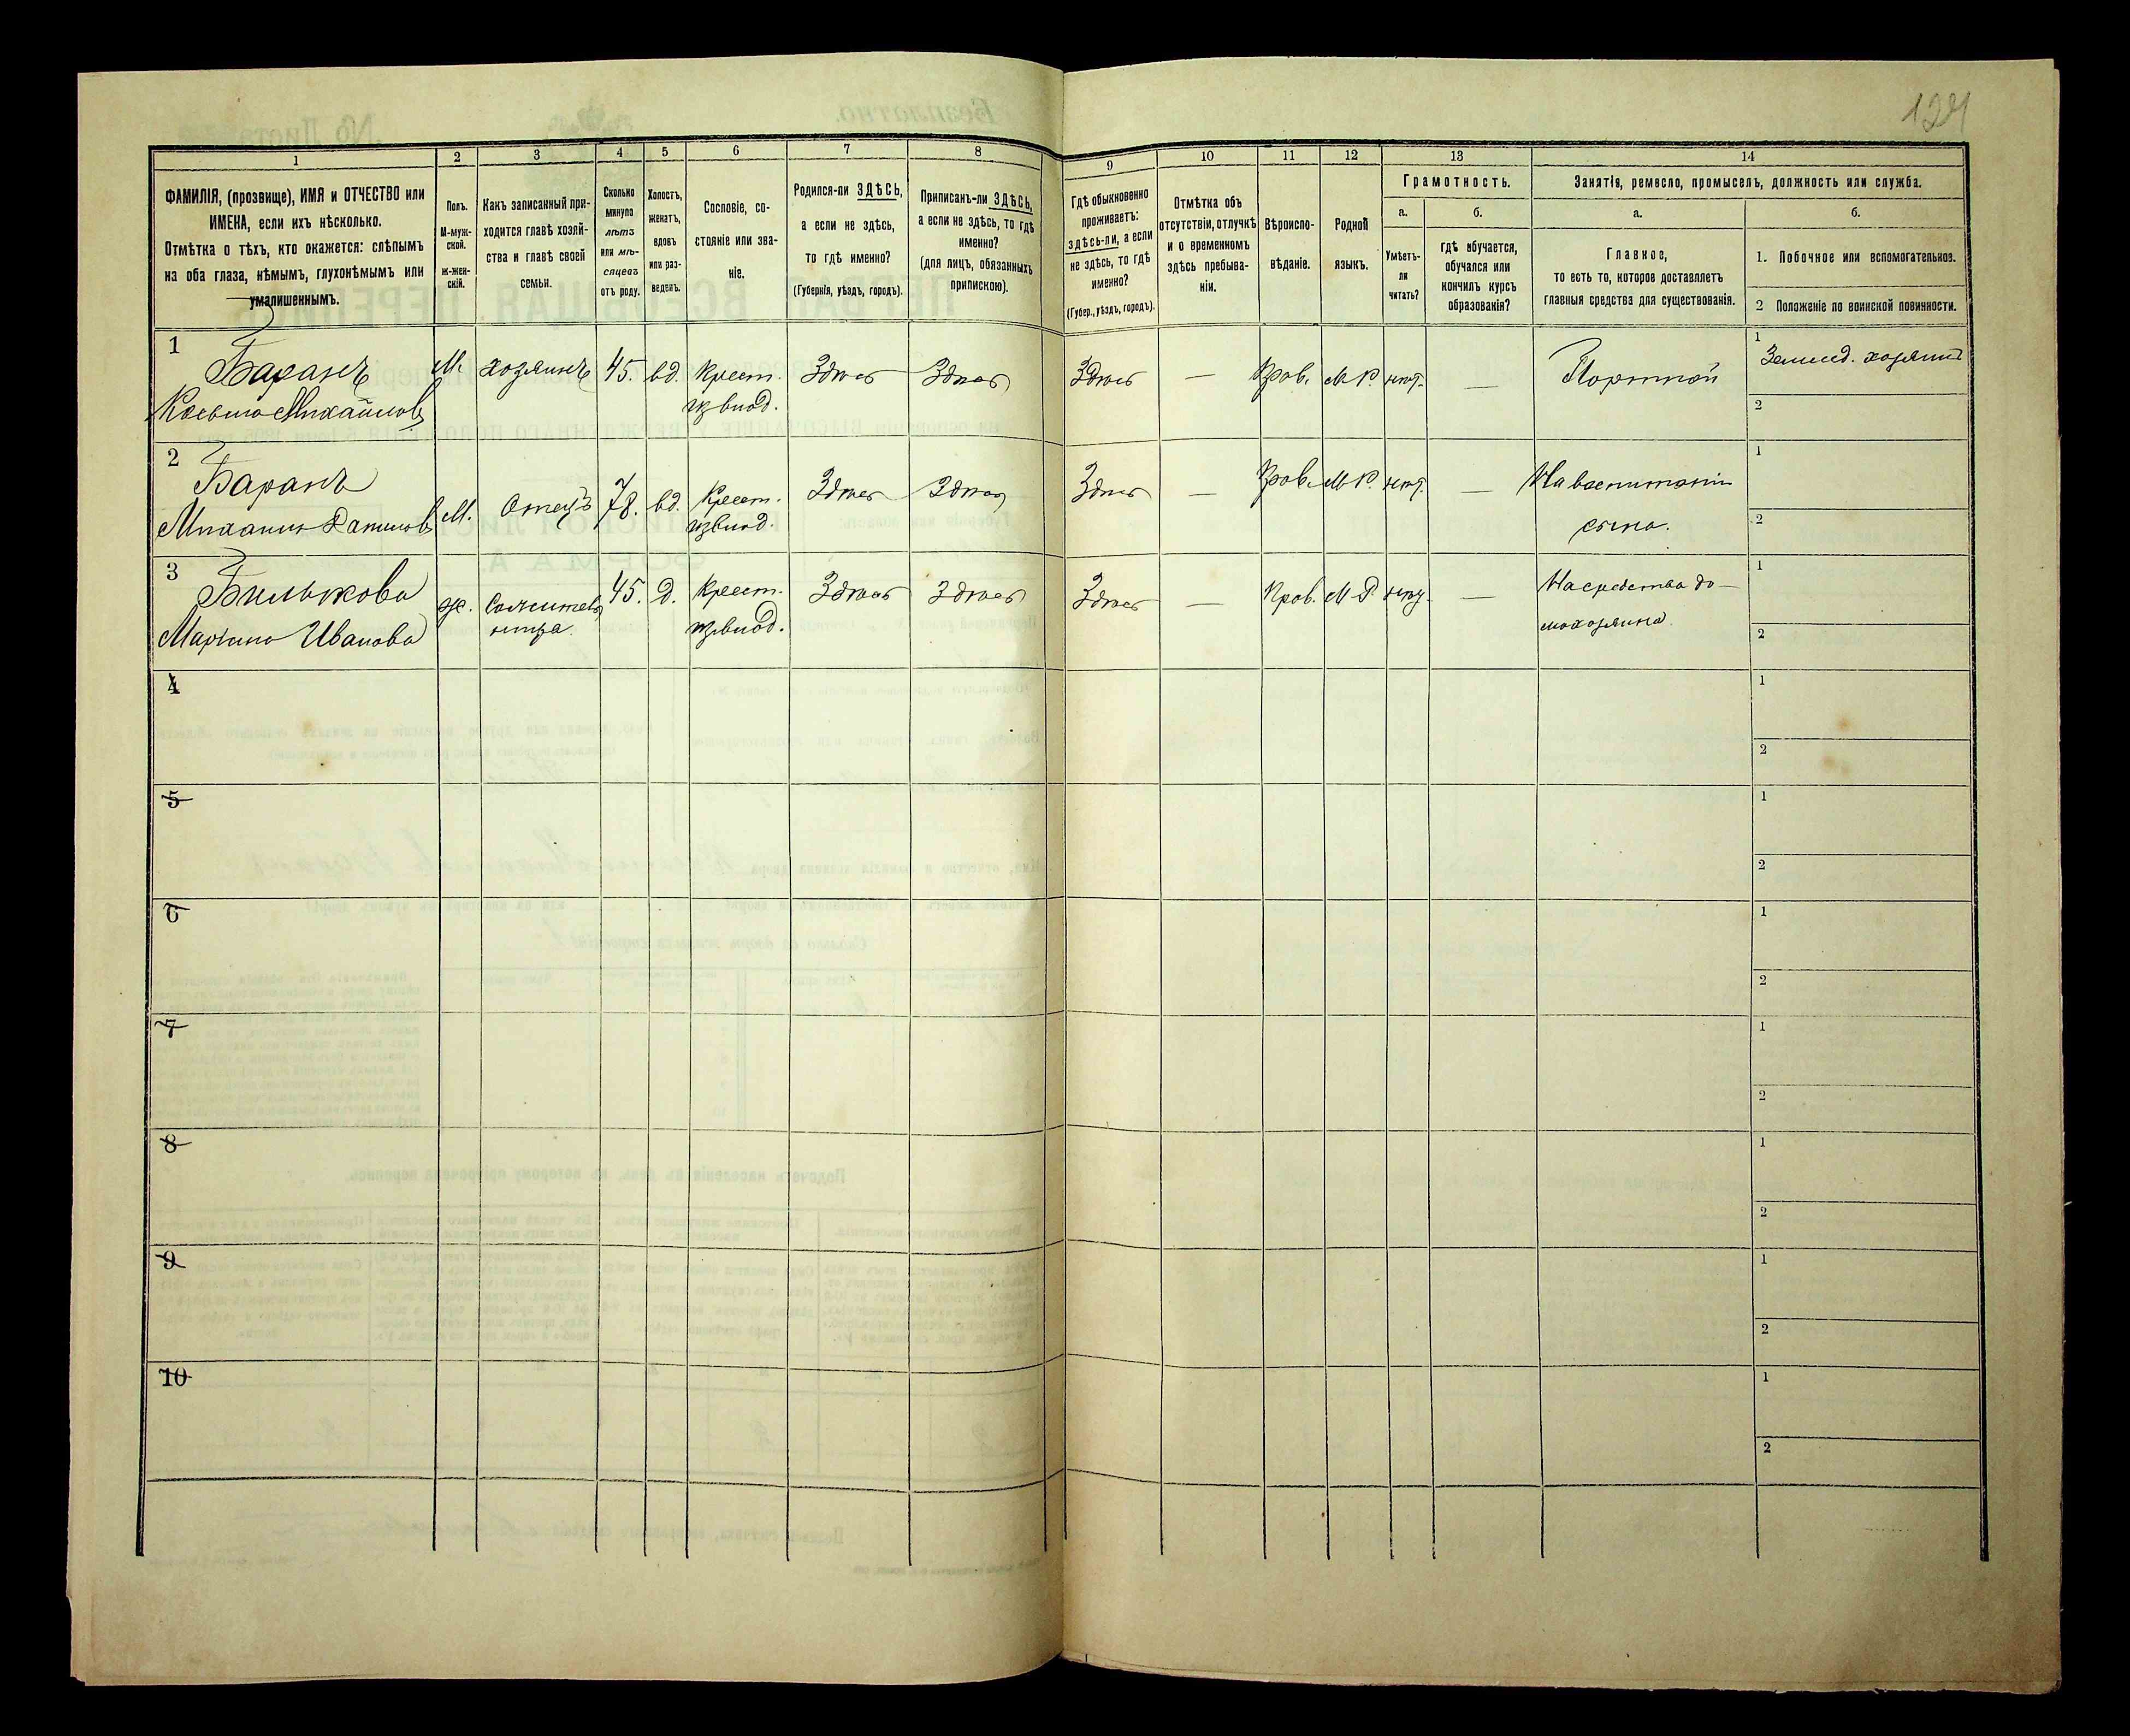 124
1
2
3
4
5
6
7
8
9
10
11
12
13
14
ФАМИЛІЯ, (прозвище), ИМЯ и ОТЧЕСТВО или
ИМЕНА, если ихъ нѣсколько.
Отмѣтка о тѣхъ, кто окажется: слѣпымъ
на оба глаза, нѣмымъ, глухонѣмымъ или
умалишеннымъ.
Полъ.
М-муж-
ской.
ж-жен-
скій.
Какъ записанный при-
ходится главѣ хозяй-
ства и главѣ своей
семьи.
Сколько
минуло
лѣтъ
или мѣ-
сяцевъ
отъ роду.
Холостъ,
женатъ,
вдовъ
или раз-
веденъ.
Сословіе, со-
стояніе или зва-
ніе.
Родился-ли ЗДѢСЬ,
а если не здѣсь,
то гдѣ именно?
(Губернія, уѣздъ, городъ).
Приписанъ-ли ЗДѢСЬ,
а если не здѣсь, то гдѣ
именно?
(для лицъ, обязанныхъ
припискою).
Гдѣ обыкновенно
проживаетъ:
здѣсь-ли, а если
не здѣсь, то гдѣ
именно?
(Губер., уѣздъ, городъ).
Отмѣтка объ
отсутствіи, отлучкѣ
и о временномъ
здѣсь пребыва-
ніи.
Вѣроиспо-
вѣданіе.
Родной
языкъ.
Грамотность.
а.
Умѣетъ-
ли
читать?
б.
гдѣ обучается,
обучался или
кончилъ курсъ
образованія?
Занятіе, ремесло, промыселъ, должность или служба.
а.
Главное,
то есть то, которое доставляетъ
главныя средства для существованія.
б.
1. Побочное или вспомогательное.
2 Положеніе по воинской повинности.
1
Баранъ
Косьма Михайловъ
М.
хозяинъ
45.
вд.
Крест.
изъ влад.
Здѣсь
Здѣсь
Здѣсь
—
Прав.
М Р.
нѣт.
—
Портной
1 Земмед. хозяинъ
2
2
Баранъ
Михаилъ Даниловъ
М.
Отецъ
78.
вд.
Крест.
изъ влад.
Здѣсь
Здѣсь
Здѣсь
—
Прав.
М Р.
нѣт.
—
На воспитаніи
сына.
1
2
3
Билькова
Марѳина Иванова
ж.
Сожитель
ница.
45.
Д.
Крест.
изъ влад.
Здѣсь
Здѣсь
Здѣсь
—
Прав.
М Р.
нѣт.
—
На средства до-
мохозяина
1
2
4
1
2
5
1
2
6
1
2
7
1
2
8
1
2
9
1
2
10
1
2